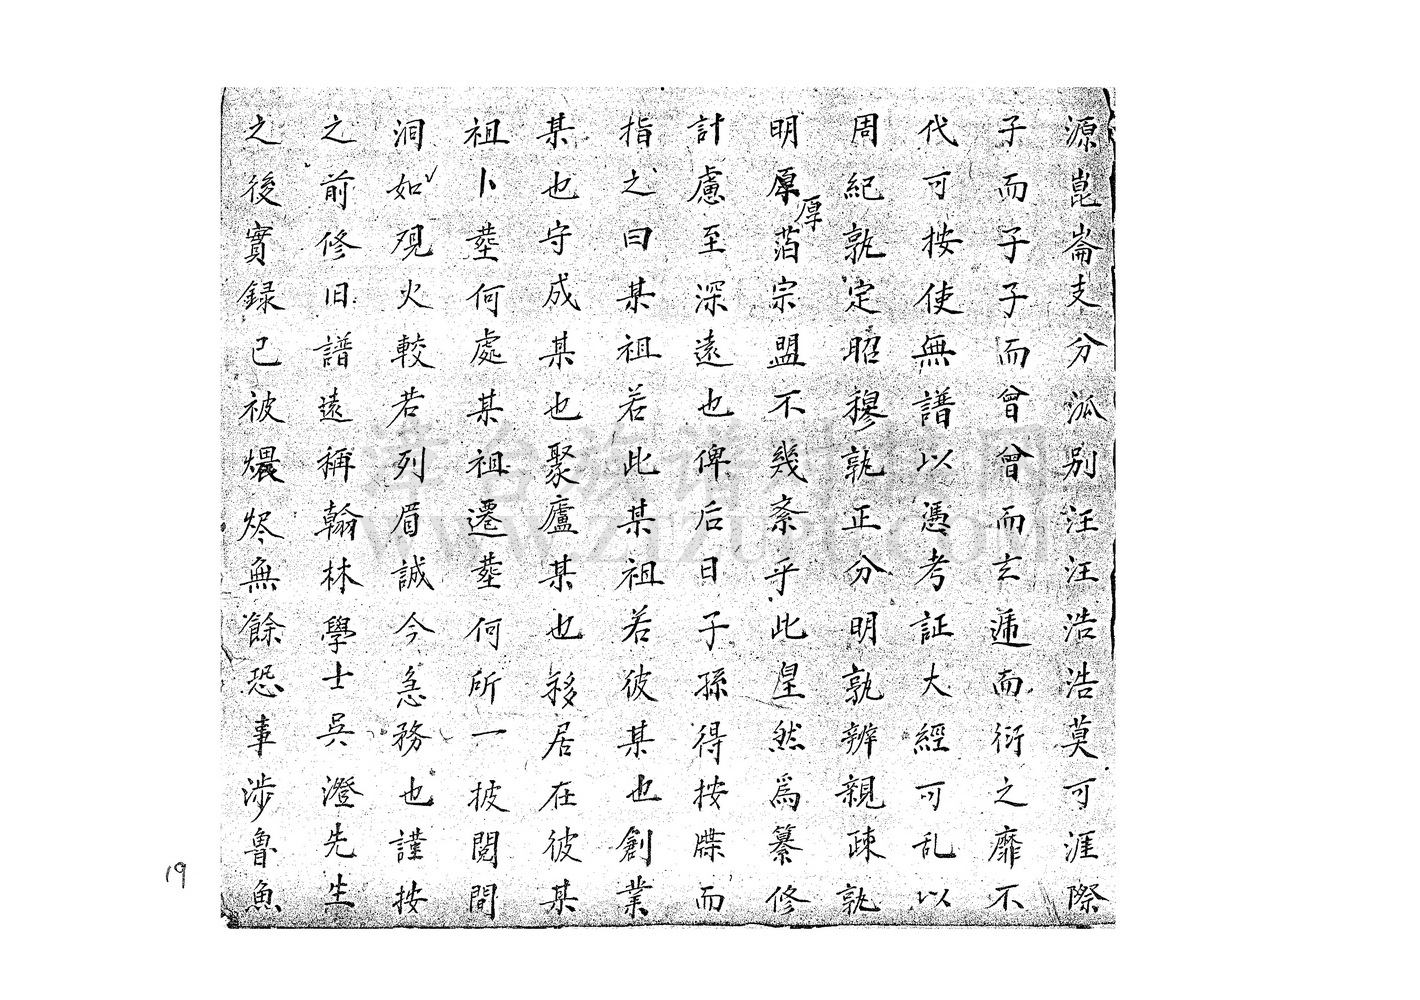 源崑崙支分派別汪汪浩浩莫可涯際
子而子子而曾曾而玄遞而衍之靡不
代可按使無譜以憑考証大經可乱以
周紀孰定昭穆孰正分明孰辨親疎孰
明厚箔宗盟不幾紊乎此皇然爲纂修
厚
計慮至深遠也俾后日子孫得按牒而
指之曰某祖若此某祖若彼某也創業
某也守成某也聚廬某也移居在彼某
祖卜塟何處某祖遷塟何所一披閱間
洞如观火較若列眉誠今急務也謹按
之前修旧譜遠稱翰林學士吳澄先生
之後實録已被燬烬無餘恐事涉魯魚
19
漳台族谱对接网
www.ZTZUPU.com